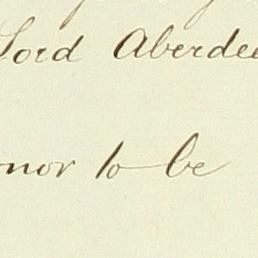 Lord Aberdee
onor to be